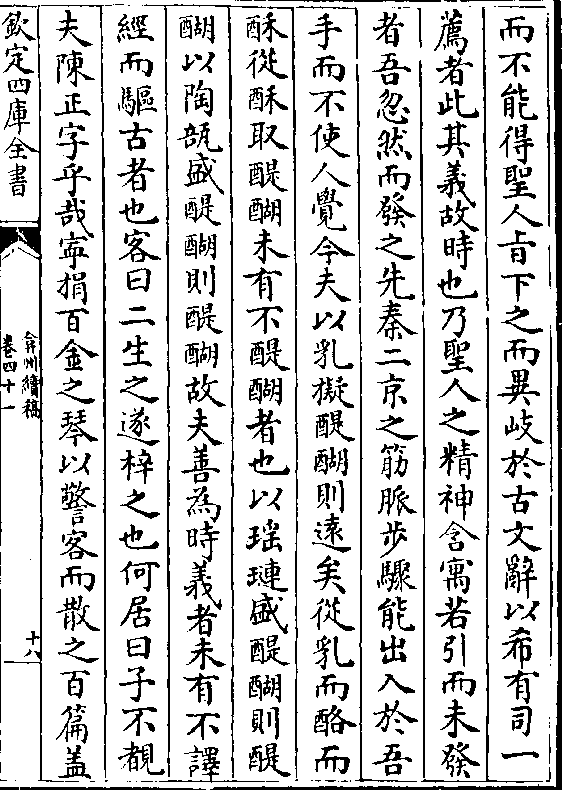 而不能得聖人㫖下之而異岐於古文辭以希有司一
薦者此其義故時也乃聖人之精神含寓若引而未發
者吾忽然而發之先秦二京之筋脈步驟能出入於吾
手而不使人覺今夫以乳擬醍醐則逺矣從乳而酪而
酥從酥取醍醐未有不醍醐者也以瑶璉盛醍醐則醍
醐以陶瓿盛醍醐則醍醐故夫善為時義者未有不譯
經而驅古者也客曰二生之遂梓之也何居曰子不覩
夫陳正字乎哉寧捐百金之琴以警客而散之百篇盖
欽定四庫全書
弇州續稿
卷四十一
十八